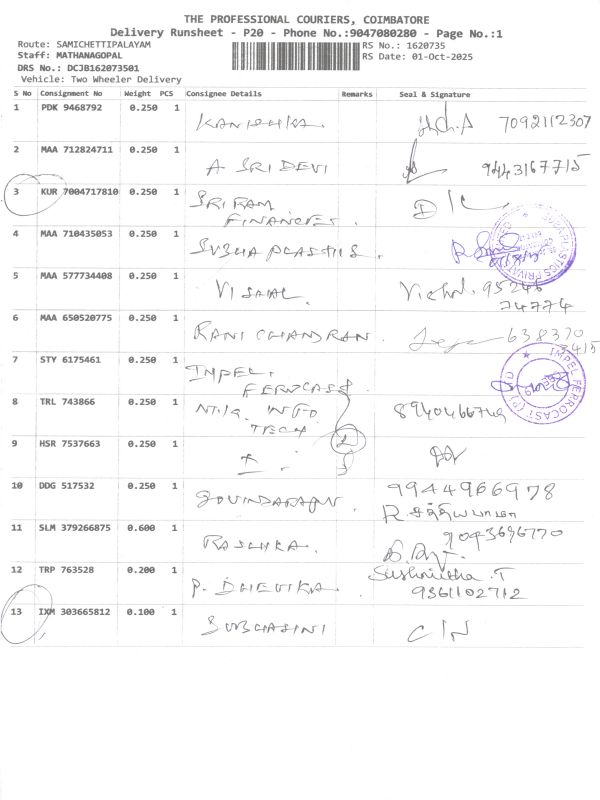 THE PROFESSIONAL COURIERS, COIMBATORE
Delivery Runsheet - P20 - Phone No.:9047080280 - Page No.:1
Route: SAMICHETTIPALAYAM RS No.: 1620735
Staff: MATHANAGOPAL RS Date: 01-Oct-2025
DRS No.: DCJB162073501
Vehicle: Two Wheeler Delivery
S No Consignment No Weight PCS Consignee Details Remarks Seal & Signature
1 PDK 9468792 0.250 1 KANISHKA. 7092112307
2 MAA 712824711 0.250 1 A SRI DEVI 9443167715
3 KUR 7004717810 0.250 1 SRI RAM D/C
FINANCES.
4 MAA 710435053 0.250 1 SUBHA PLASTICS.
5 MAA 577734408 0.250 1 VISHAL. Vishal. 95246
74774
6 MAA 650520775 0.250 1 RANI CHANDRAN. 638370
3415
7 STY 6175461 0.250 1 IMPEL
FERROCAST
IMPEL FERROCAST (P) LTD
8 TRL 743866 0.250 1 INFO 8940466749
TECH
9 HSR 7537663 0.250 1 2
10 DDG 517532 0.250 1 GOVINDARAJU. 9944966978
11 SLM 379266875 0.600 1 RASHIKA. 9043696770
12 TRP 763528 0.200 1 P. DHEVIKA. Sushmitha.T
9361102712
13 IXM 303665812 0.100 1 SUBHASINI C/N